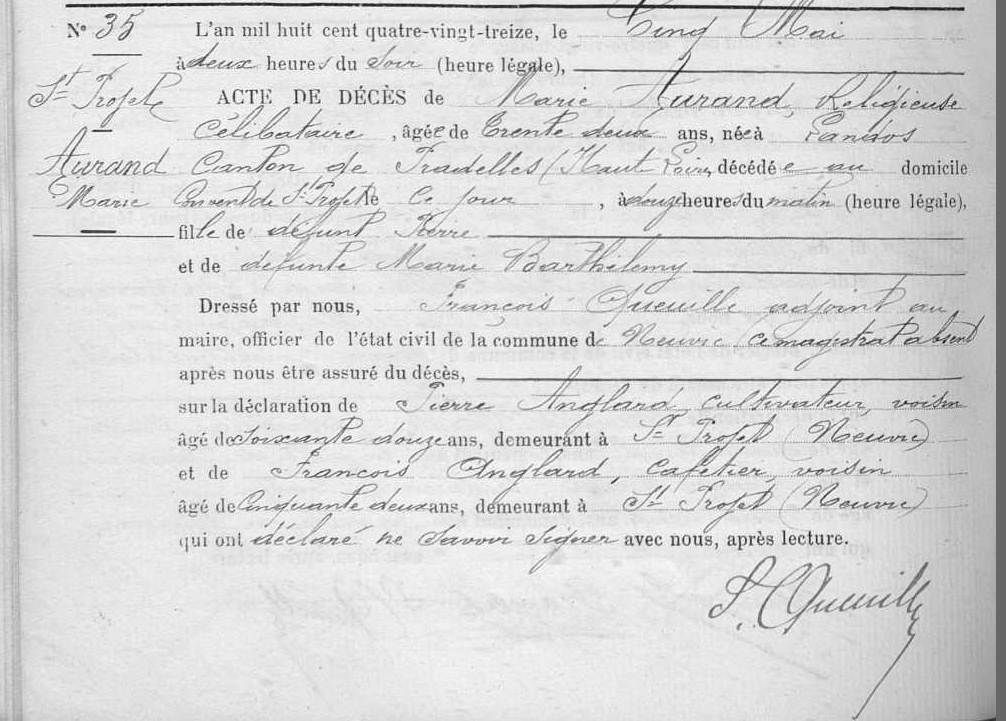 N° 35
L'an mil huit cent quatre-vingt-treize, le Cinq Mai
à deux heures du Soir (heure légale),
St Projet
ACTE DE DÉCÈS de Marie Aurand, Religieuse
Célibataire, âgée de Trente deux ans, née à Landos
Aurand
Canton de Pradelles (Haute Loire), décédée au domicile
Marie
Couvent de St Projet le Ce jour, à douze heures du matin (heure légale),
fille de défunt Pierre
et de défunte Marie Barthélemy
Dressé par nous, François Queuille adjoint au
maire, officier de l'état civil de la commune de Neuvic (ce magistrat absent
après nous être assuré du décès,
sur la déclaration de Pierre Anglard, cultivateur, voisin
âgé de Soixante douze ans, demeurant à St Projet (Neuvic)
et de François Anglard, Cafetier, voisin
âgé de Cinquante deux ans, demeurant à St Projet (Neuvic)
qui ont déclaré ne Savoir Signer avec nous, après lecture.
F. Queuille